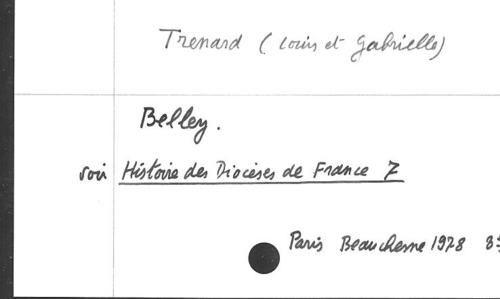 Trenard (Louis et Gabrielle)
Belley.
voir Histoire des Diocèses de France 7
Paris Beauchesne 1978 8°